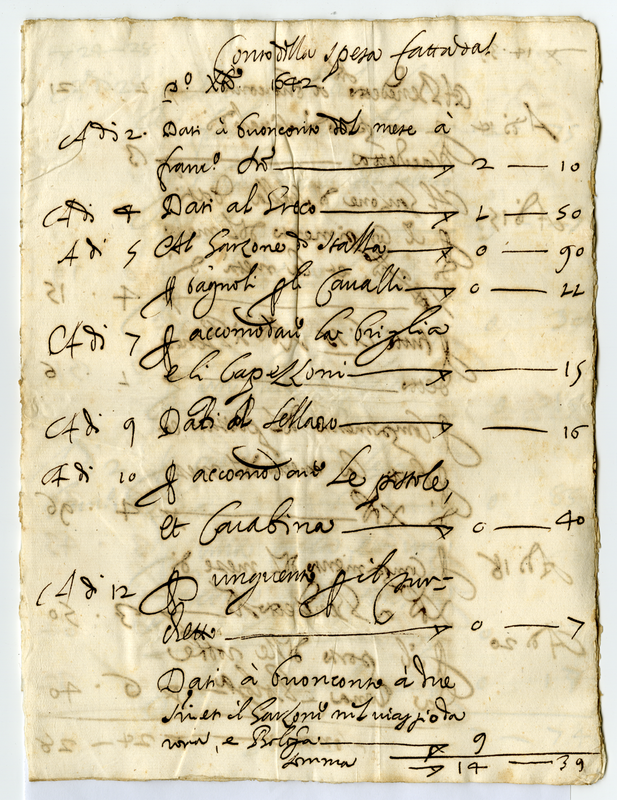 Conto della spesa fatta dal
p.º Xbre 1642
A di 2. Dati à buonconto del mese à
franc.º 2 — 10
A di 4 Dati al Greco 1 — 50
A di 5 Al Garzone di stalla 0 — 90
p bagnoli p li Cavalli 0 — 22
A di 7 p accomodare la briglia
e li Capezzoni — 15
A di 9 Dati al sellaro — 16
A di 10 p accomodare Le pistole,
et Carabina 0 — 40
A di 12 p unguento p il
0 — 7
Dati à buonconto à due
et il Garzone nel viaggio da
e Bologa 9
somma 14 — 39